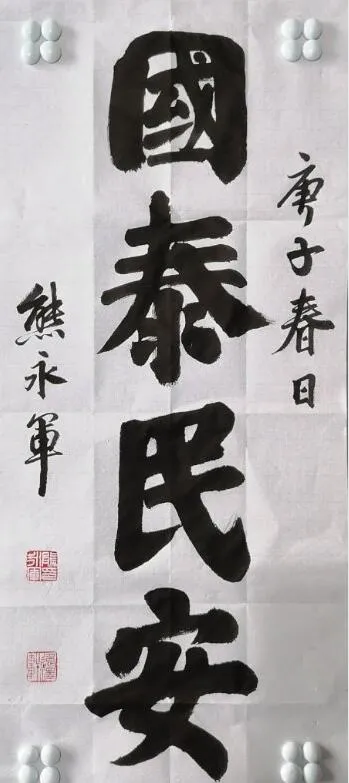 庚子春日
國泰民安
熊永軍